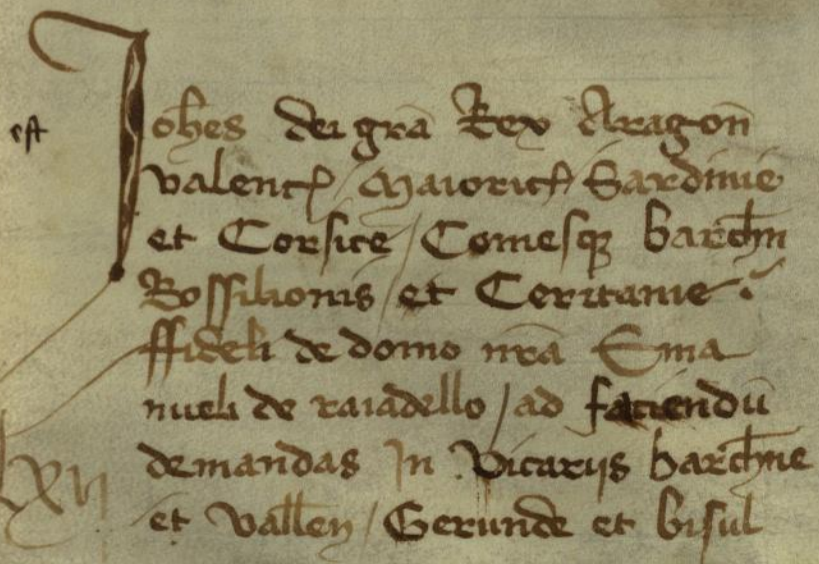 est
Joh̃es dei gr̃a Rex Aragon̄
valencꝭ / Maioricꝭ / Sardinie
et Corsice / Comesqꝫ barch̃n
Rossilionis / et Ceritanie
ffideli de domo nr̃a Ema
nueli de raiadello / ad faciendū
demandas In Vicarijs barch̃ne
et vallen̄ / Gerunde et bisul
lxij